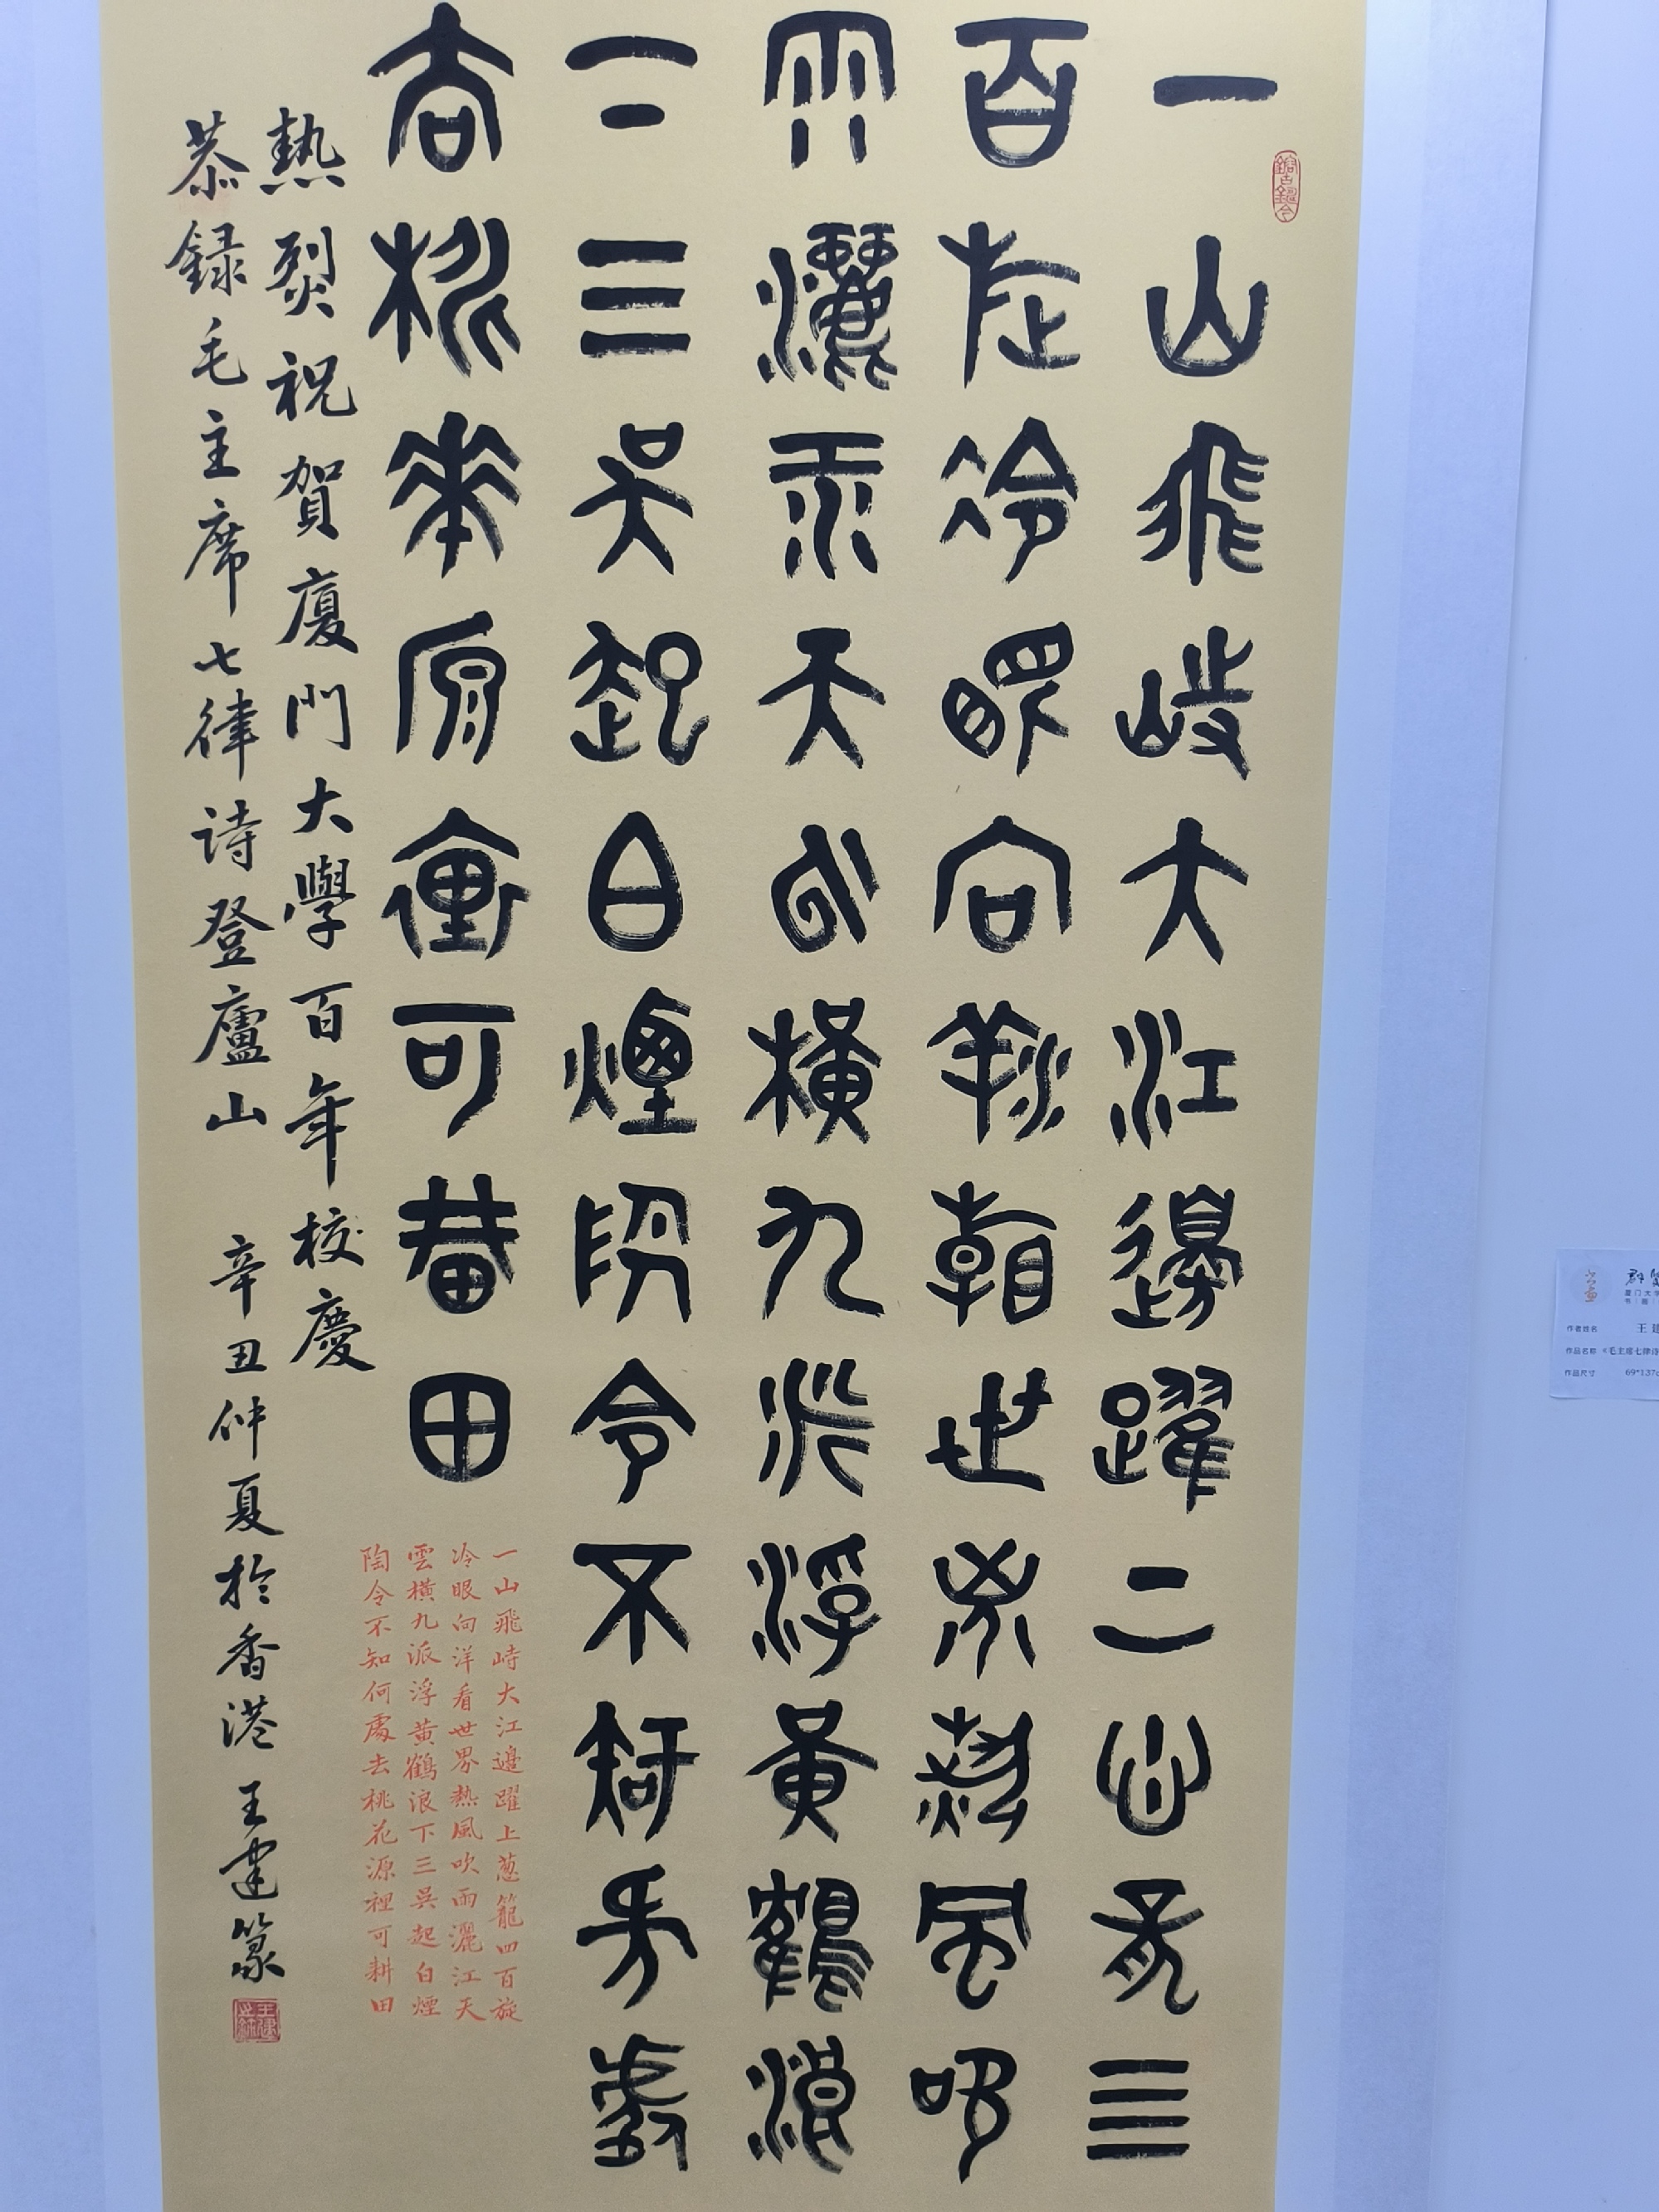 一山飛峙大江邊躍上蔥蘢四
百旋冷眼向洋看世界熱風吹
雨灑江天雲橫九派浮黃鶴浪
下三吳起白煙陶令不知何處
去桃花源裡可耕田
一山飛峙大江邊躍上蔥籠四百旋
冷眼向洋看世界熱風吹雨灑江天
雲橫九派浮黄鶴浪下三吳起白煙
陶令不知何處去桃花源裡可耕田
熱烈祝賀廈門大學百年校慶
恭録毛主席七律诗登廬山 辛丑仲夏於香港王建篆
厦门大学
作者姓名 王建
作品名称 《毛主席七律诗
作品尺寸 69*137